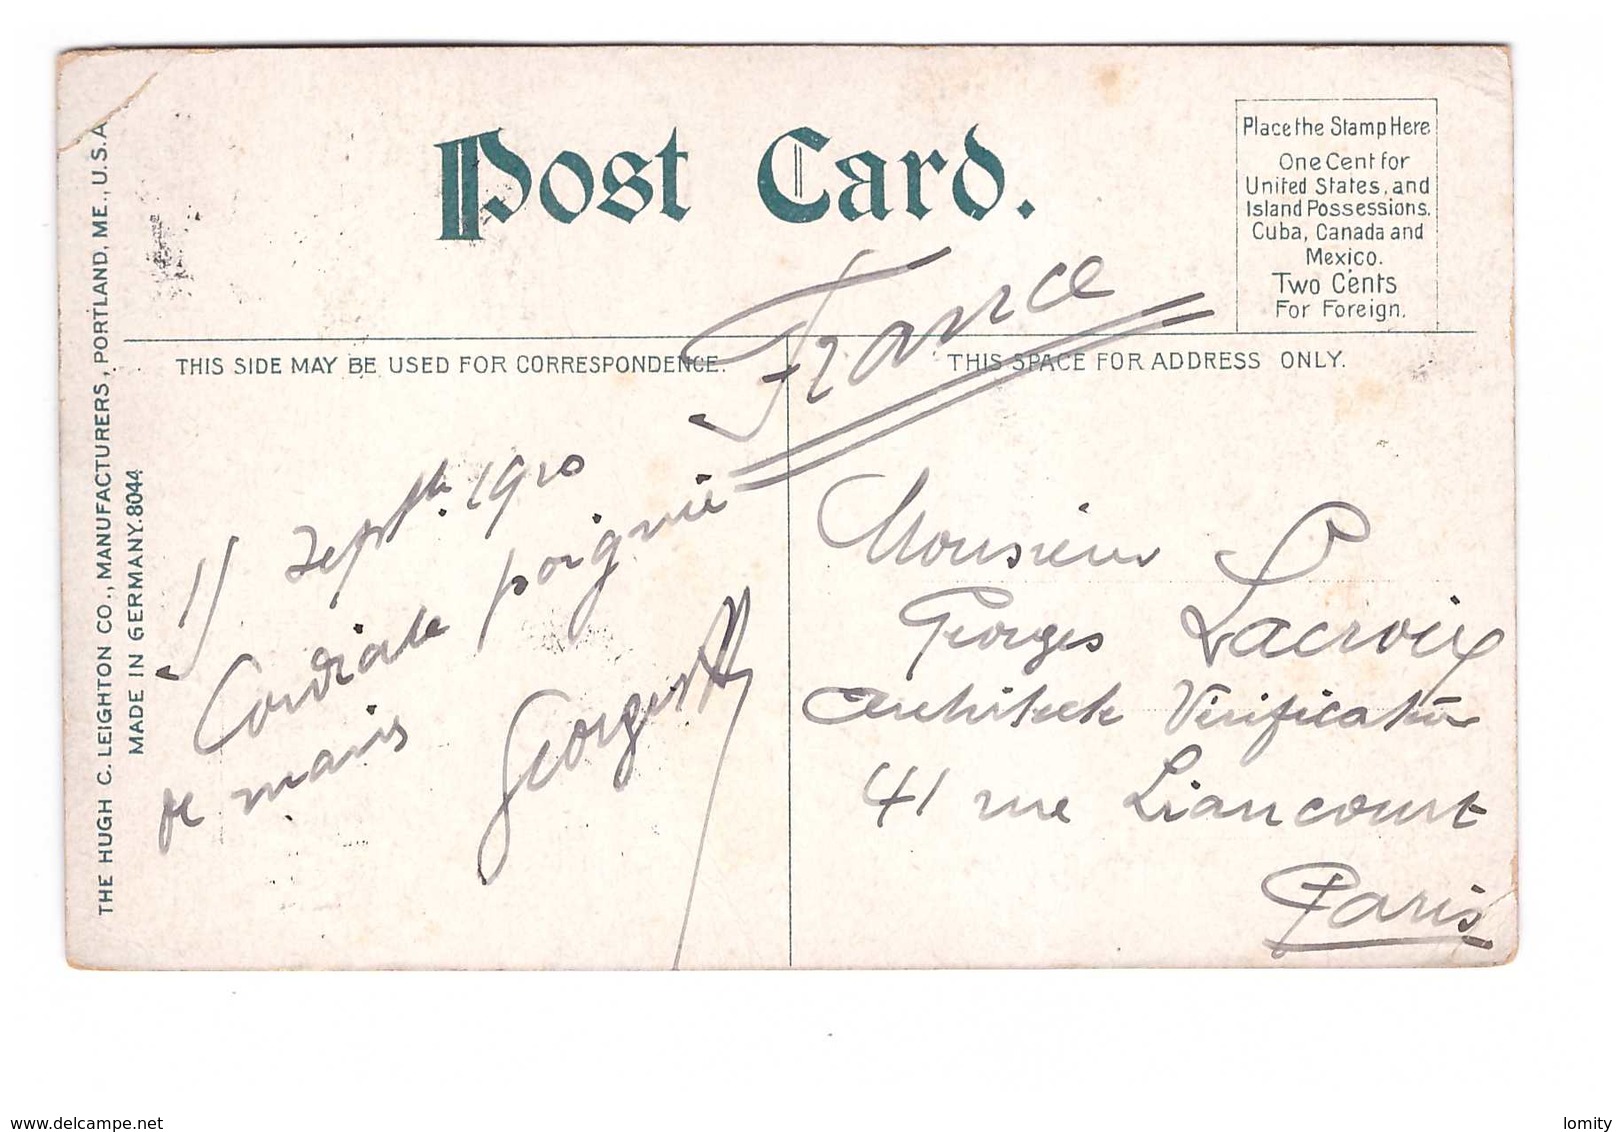 Post Card.
Place the Stamp Here
One Cent for
United States, and
Island Possessions.
Cuba, Canada and
Mexico.
Two Cents
For Foreign.
France
THIS SIDE MAY BE USED FOR CORRESPONDENCE.
THIS SPACE FOR ADDRESS ONLY.
THE HUGH C. LEIGHTON CO., MANUFACTURERS, PORTLAND, ME., U.S.A.
MADE IN GERMANY. 8044
1910
Cordiale poignée
de mains
Monsieur
Georges Lacroix
Architecte Vérificateur
41 rue Liancourt
Paris
www.delcampe.net
lomity